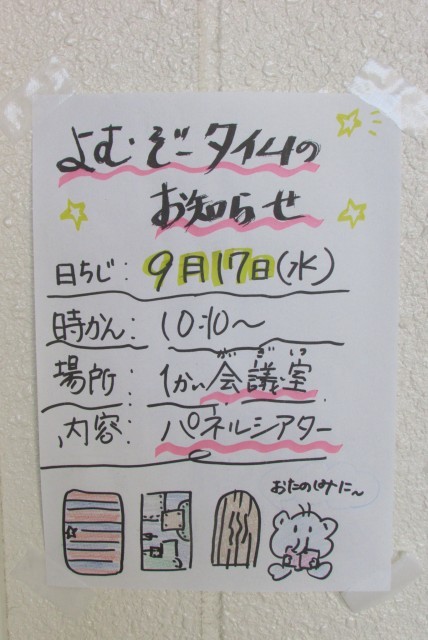 よむ・ぞータイムの
お知らせ
日ちじ: 9月17日(水)
時かん: 10:10〜
かぎしつ
場所: 1かい会議室
内容: パネルシアター
おたのしみに〜